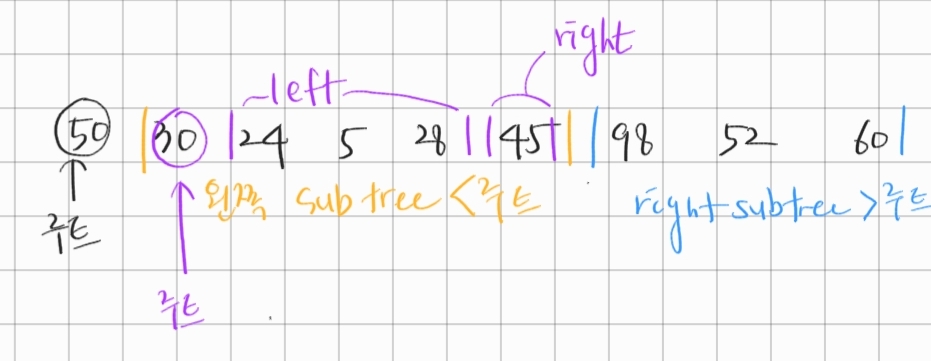 right
left
50 30 24 5 28 45 98 52 60
왼쪽 subtree < 루트
right subtree > 루트
루트
루트